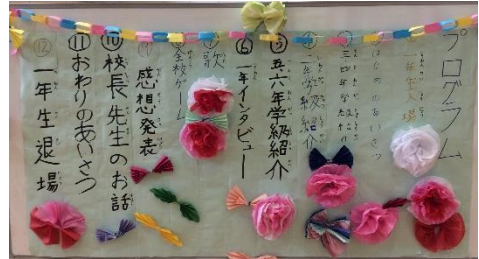 プログラム
一年生入場
はじめのあいさつ
三四年学級紹介
二年学級紹介
⑤五六年学級紹介
⑥一年インタビュー
⑦歌
全校ゲーム
⑨感想発表
⑩校長先生のお話
⑪おわりのあいさつ
⑫一年生退場